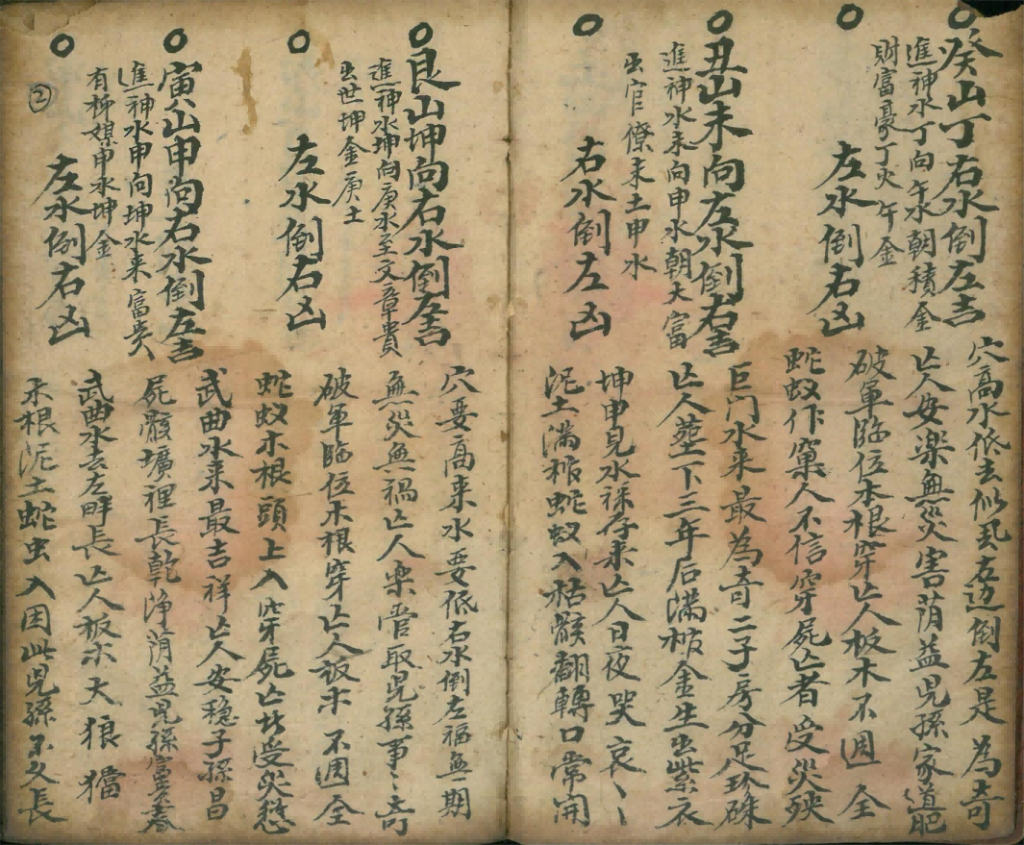 癸山丁右水倒左吉
進神水丁向午水朝積金
財富豪丁火午金
穴高水低去似飛右边倒左是為奇
亡人安樂無災害荫益児孫家道肥
左水倒右凶
破軍臨位木根穿亡人板木不週全
蛇蚁作窠人不信穿屍亡者受災殃
丑山未向左水倒右吉
進神水未向申水朝大富
出官僚未土申水
巨门水来最為奇二子房分足珍珠
亡人塟下三年后满棺金生出紫衣
右水倒左凶
坤申見水禄存来亡人日夜哭哀〻
泥土满棺蛇蚁入枯骸翻轉口常開
艮山坤向右水倒左吉
進神水坤向庚水至文章貴
出世坤金庚土
穴要高来水要低右水倒左福無期
無災無禍亡人楽管取児孫事〻奇
左水倒右凶
破軍臨位木根穿亡人板木不週全
蛇蚁木根頭上入穿屍亡者受災愁
寅山申向右水倒左吉
進神水申向坤水来富贵
有柳媒申水坤金
武曲水来最吉祥亡人安穏子孫昌
屍骸壙裡長乾净荫益児孫富貴春
左水倒右凶
武曲水去左畔長亡人板木大狼獧
木根泥土蛇虫入因此児孫不久長
②